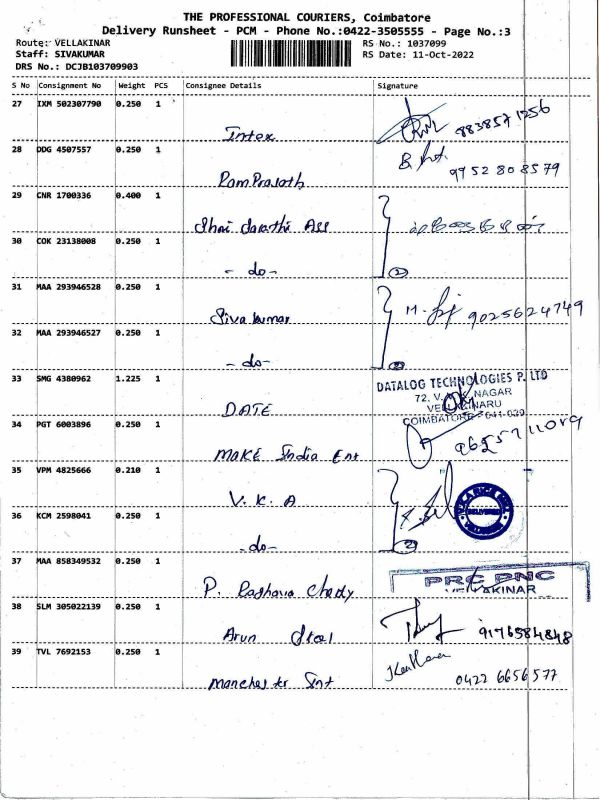 THE PROFESSIONAL COURIERS, Coimbatore
Delivery Runsheet - PCM - Phone No.:0422-3505555 - Page No.:3
Route: VELLAKINAR RS No.: 1037099
Staff: SIVAKUMAR RS Date: 11-Oct-2022
DRS No.: DCJB103709903
S No Consignment No Weight PCS Consignee Details Signature
27 IXM 502307790 0.250 1
Intex 8838571256
28 DDG 4507557 0.250 1
RamPrasath 9952808579
29 CNR 1700336 0.400 1
Shri Sarathi Ass
30 COK 23138008 0.250 1
- do - 2
31 MAA 293946528 0.250 1
Siva kumar 9025624749
32 MAA 293946527 0.250 1
- do - 2
33 SMG 4380962 1.225 1
DATE
DATALOG TECHNOLOGIES P. LTD
72, NAGAR
COIMBATORE - 641 029
34 PGT 6003896 0.250 1
MAKE India Ent
35 VPM 4825666 0.210 1
V. K. A
DELIVERED
36 KCM 2598041 0.250 1
- do - 2
37 MAA 858349532 0.250 1
P. Raghava Chedy
VELLAKINAR
38 SLM 305022139 0.250 1
Arun Steel 9176584848
39 TVL 7692153 0.250 1
Manchester Sint 0422 6656577